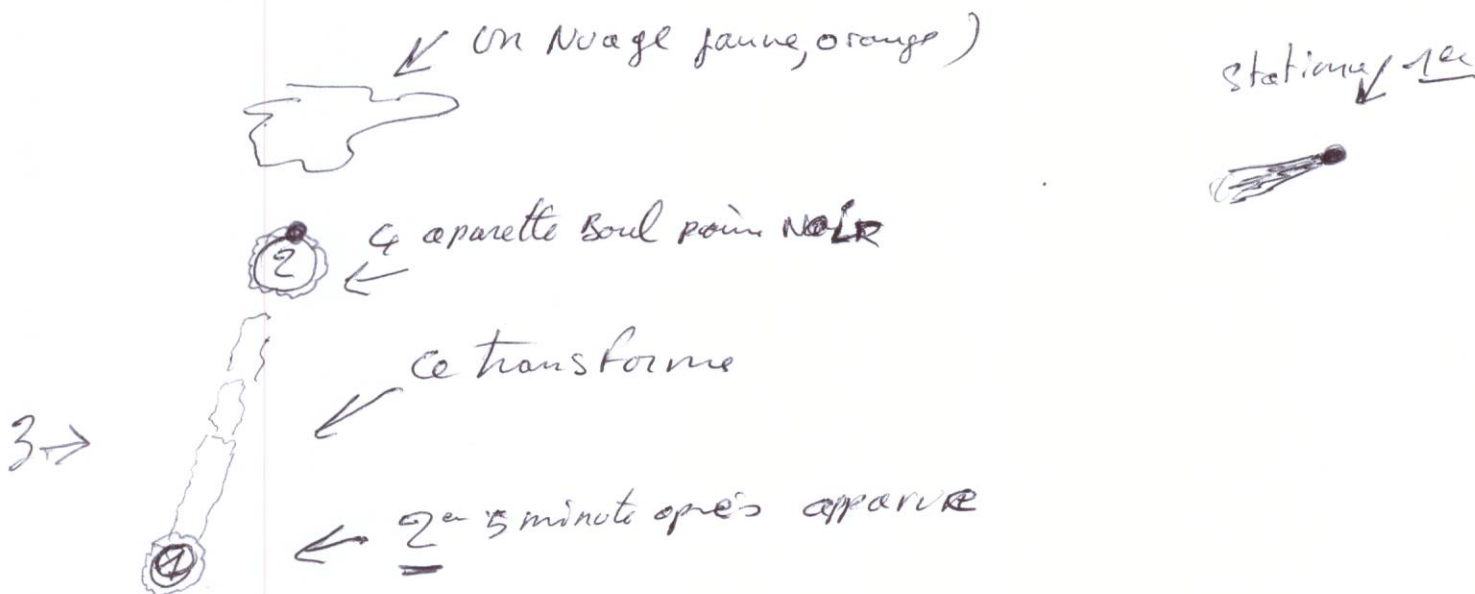 un Nuage jaune, orange)
stationne 1er
2
4 aparette Boul poin NOIR
ce transforme
3→
2e 5 minute après apparure
1